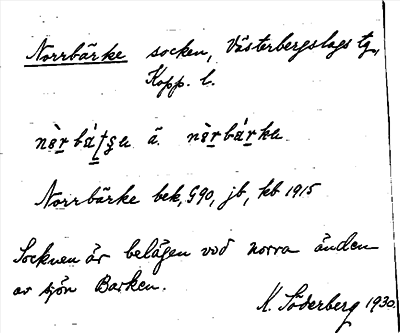 Norrbärke socken, Västerbergslags tg,
Kopp. l.
Norrbärke bek, G90, jb, kb 1915
Socknen är belägen vid norra änden
av sjön Barken.
K. Söderberg 1930.